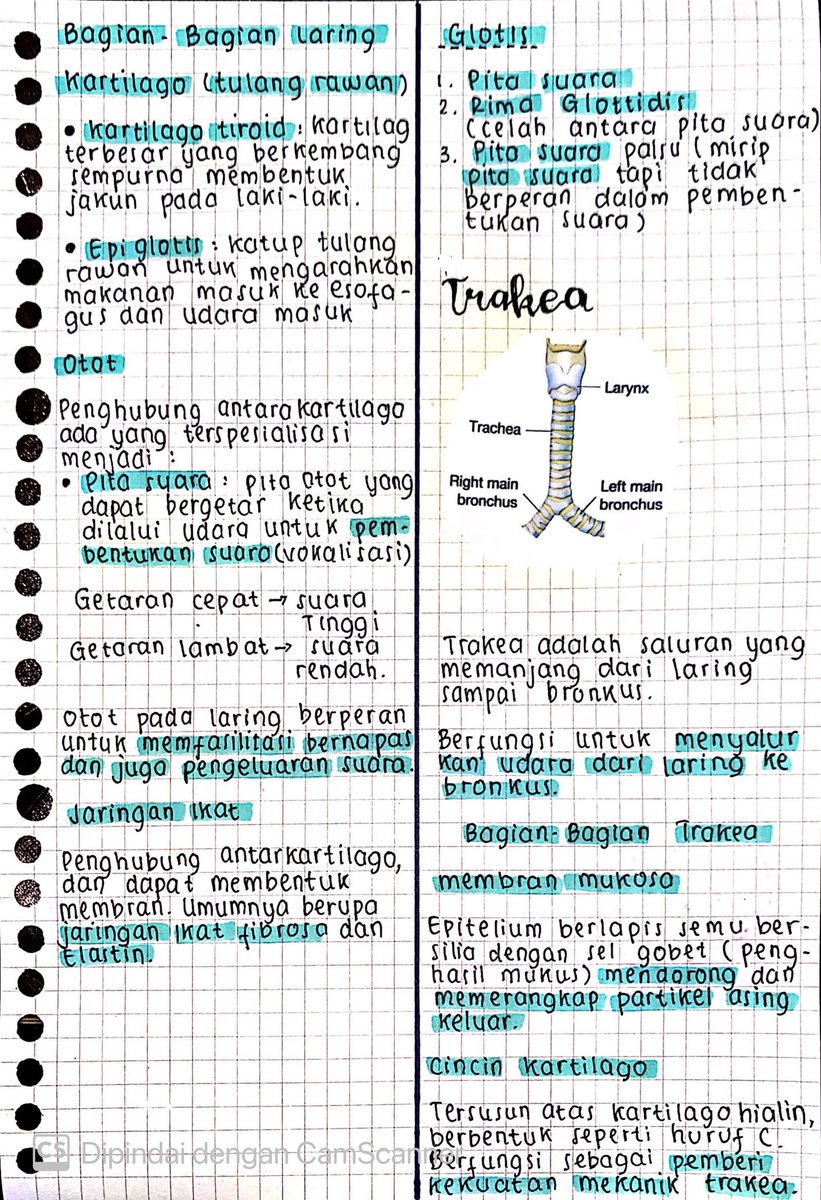 Bagian-Bagian laring
Kartilago (tulang rawan)
• Kartilago tiroid : Kartilag
terbesar yang berkembang
sempurna membentuk
jakun pada laki-laki.
• Epiglotis : katup tulang
rawan untuk mengarahkan
makanan masuk ke esofa-
gus dan udara masuk
Otot
Penghubung antara kartilago
ada yang terspesialisasi
menjadi :
• Pita suara : pita otot yang
dapat bergetar ketika
dilalui udara untuk pem-
bentukan suara (vokalisasi)
Getaran cepat → suara
Tinggi
Getaran lambat → suara
rendah.
Otot pada laring berperan
untuk memfasilitasi bernapas
dan juga pengeluaran suara.
Jaringan Ikat
Penghubung antarkartilago,
dan dapat membentuk
membran. Umumnya berupa
jaringan ikat fibrosa dan
Elastin.
Glotis
1. Pita suara
2. Rima Glottidis
(celah antara pita suara)
3. Pita suara palsu (mirip
pita suara tapi tidak
berperan dalam pemben-
tukan suara)
Trakea
Larynx
Trachea
Right main
bronchus
Left main
bronchus
Trakea adalah saluran yang
memanjang dari laring
sampai bronkus.
Berfungsi untuk menyalur
kan udara dari laring ke
bronkus.
Bagian-Bagian Trakea
membran mukosa
Epitelium berlapis semu ber-
silia dengan sel gobet (peng-
hasil mukus) mendorong dan
memerangkap partikel asing
keluar.
Cincin Kartilago
Tersusun atas kartilago hialin,
berbentuk seperti huruf C.
Berfungsi sebagai pemberi
kekuatan mekanik trakea.
CS Dipindai dengan CamScanner